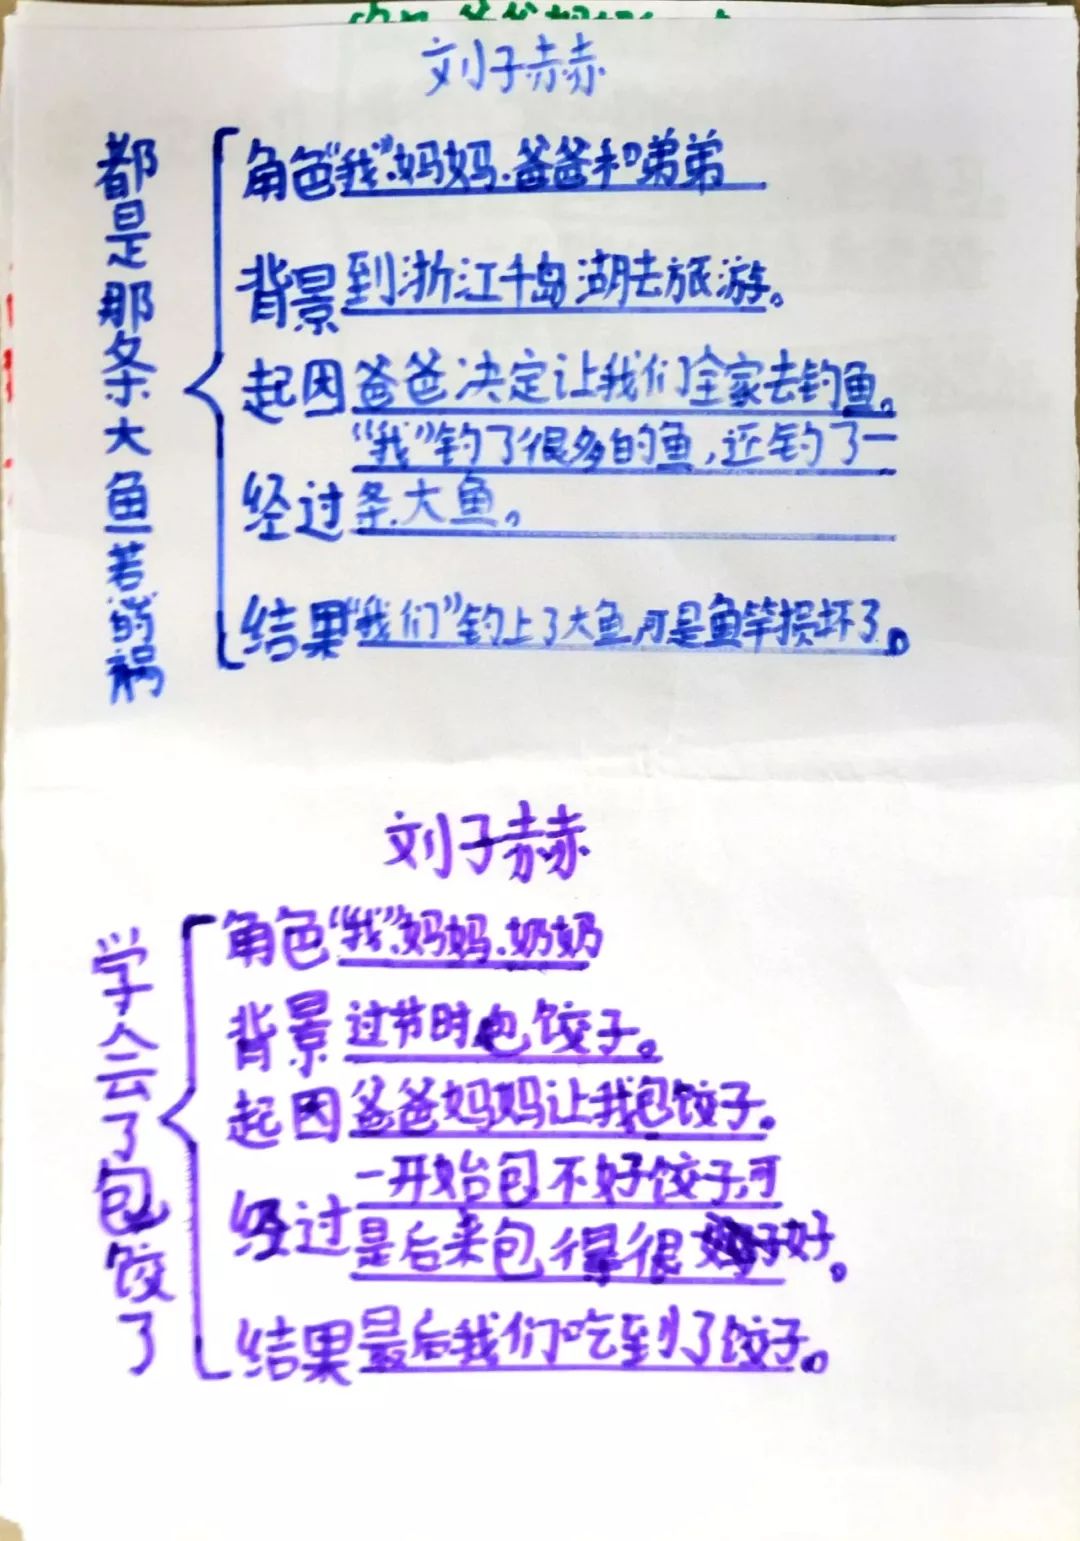 刘子赫
都是那条大鱼若的祸
角色“我”、妈妈、爸爸和弟弟
背景到浙江千岛湖去旅游。
起因爸爸决定让我们全家去钓鱼。
“我”钓了很多的鱼,还钓了一
经过条大鱼。
结果“我们”钓上了大鱼,可是鱼竿损坏了。
刘子赫
学会了包饺了
角色“我”、妈妈、奶奶
背景过节时包饺子。
起因爸爸妈妈让我包饺子。
一开始包不好饺子,可
经过是后来包得很好。
结果最后我们吃到了饺子。